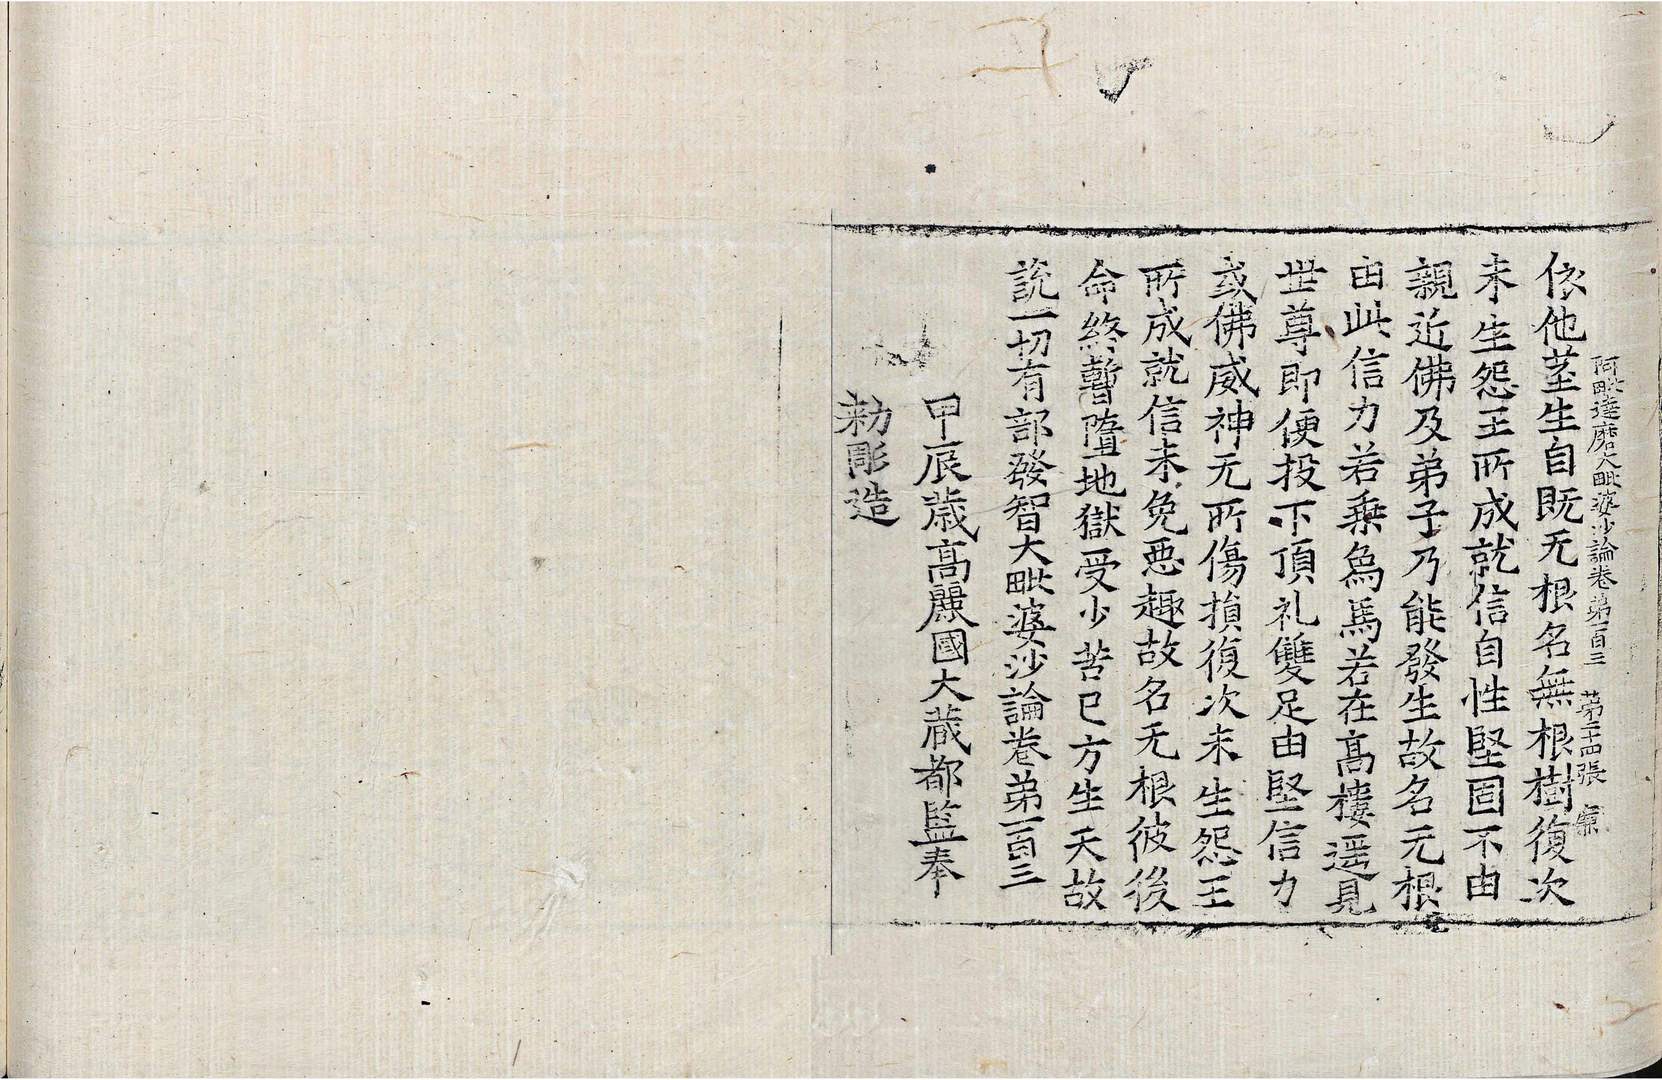 阿毗達磨大毗婆沙論卷第一百三 第二十四張
依他莖生自既无根名無根樹復次
未生怨王所成就信自性堅固不由
親近佛及弟子乃能發生故名无根
由此信力若乘象馬若在高樓遥見
世尊即便投下頂礼雙足由堅信力
或佛威神无所傷損復次未生怨王
所成就信未免惡趣故名无根彼後
命終暫墮地獄受少苦已方生天故
說一切有部發智大毗婆沙論卷第一百三
甲辰歲高麗國大藏都監奉
勅彫造